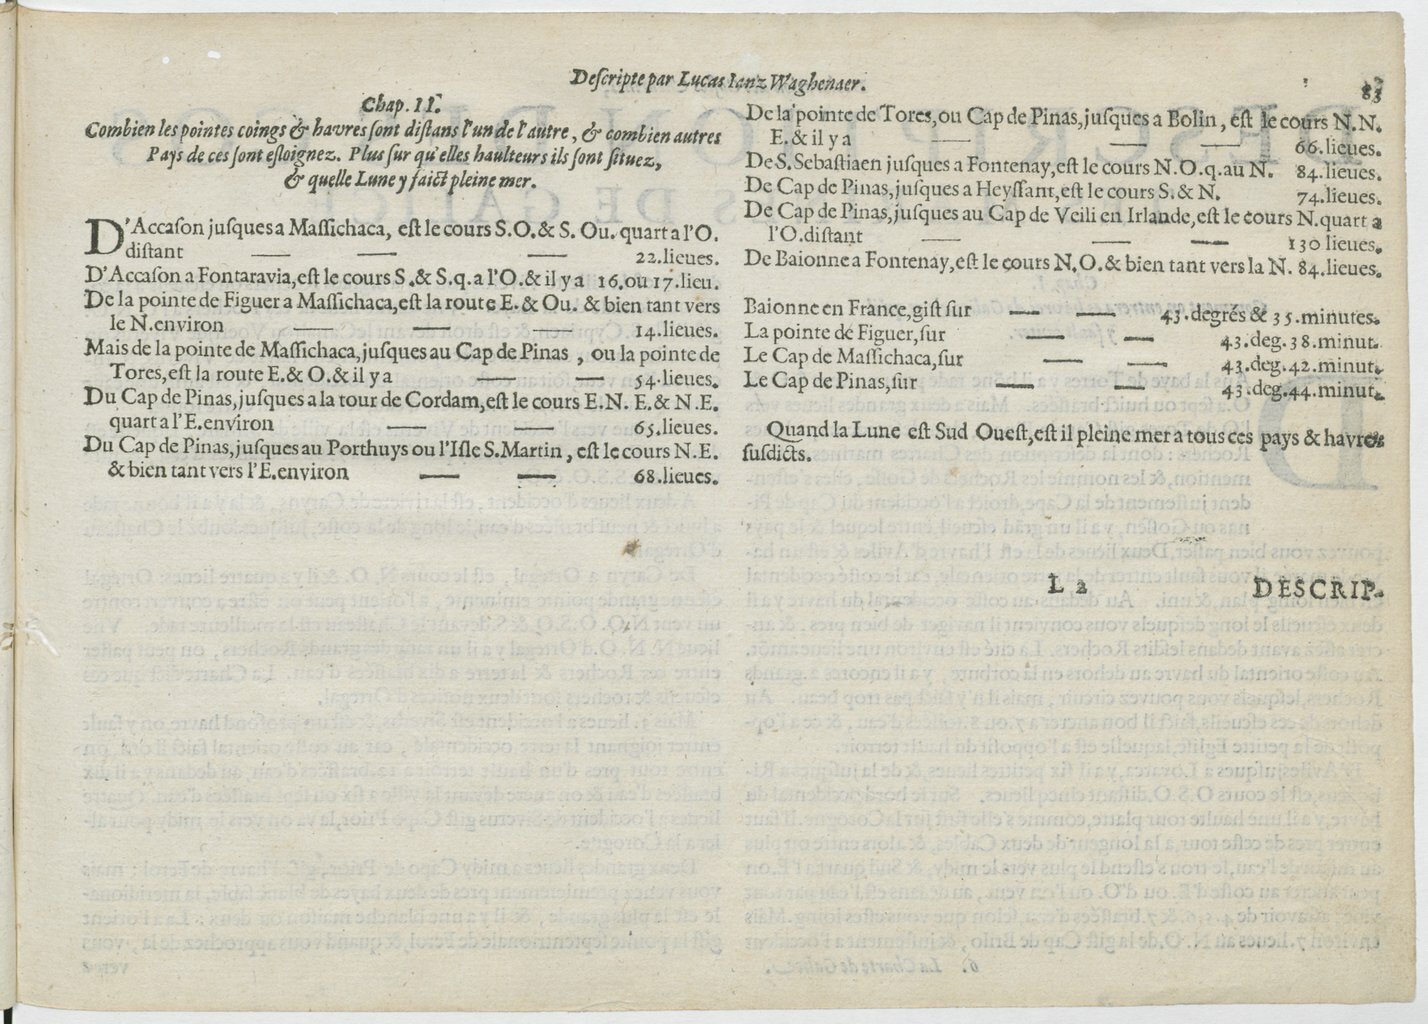 Descripte par Lucas Ianz Waghenaer.
83
Chap. II.
Combien les pointes coings & havres sont distans l'un de l'autre, & combien autres
Pays de ces sont esloignez. Plus sur qu'elles haulteurs ils sont situez,
& quelle Lune y faict pleine mer.
D'Accason jusques a Massichaca, est le cours S.O. & S. Ou. quart a l'O.
distant 22. lieues.
D'Accason a Fontaravia, est le cours S. & S. q. a l'O. & il y a 16. ou 17. lieu.
De la pointe de Figuer a Massichaca, est la route E. & Ou. & bien tant vers
le N. environ 14. lieues.
Mais de la pointe de Massichaca, jusques au Cap de Pinas, ou la pointe de
Tores, est la route E. & O. & il y a 54. lieues.
Du Cap de Pinas, jusques a la tour de Cordam, est le cours E.N. E. & N.E.
quart a l'E. environ 65. lieues.
Du Cap de Pinas, jusques au Porthuys ou l'Isle S. Martin, est le cours N.E.
& bien tant vers l'E. environ 68. lieues.
De la pointe de Tores, ou Cap de Pinas, jusques a Bolin, est le cours N.N.
E. & il y a 66. lieues.
De S. Sebastiaen jusques a Fontenay, est le cours N.O. q. au N. 84. lieues.
De Cap de Pinas, jusques a Heyssant, est le cours S. & N. 74. lieues.
De Cap de Pinas, jusques au Cap de Veili en Irlande, est le cours N. quart a
l'O. distant 130 lieues.
De Baionne a Fontenay, est le cours N.O. & bien tant vers la N. 84. lieues.
Baionne en France, gist sur 43. degrés & 35. minutes.
La pointe de Figuer, sur 43. deg. 38. minut.
Le Cap de Massichaca, sur 43. deg. 42. minut.
Le Cap de Pinas, sur 43. deg. 44. minut.
Quand la Lune est Sud Ouest, est il pleine mer a tous ces pays & havres
susdicts.
L 2 DESCRIP-